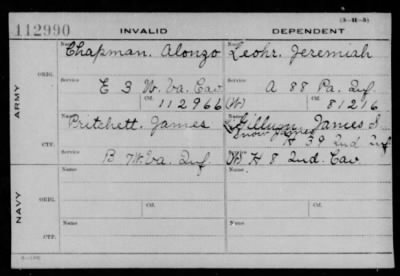 (3-111)
112990 INVALID DEPENDENT
ARMY
ORIG.
Name Chapman, Alonzo Name Leohr, Jeremiah
Service Service
E 3 W. Va. Cav A 88 Pa. Inf.
Ctf. 112966 (W) Ctf. 81216
CTF.
Name Name
Pritchett, James Gillum, James S.
K 39 2nd Inf
B 7 W Va. Inf. (W) H 8 2nd. Cav
NAVY
ORIG.
Name Name
Service Ctf. Service Ctf.
CTF.
Name Name